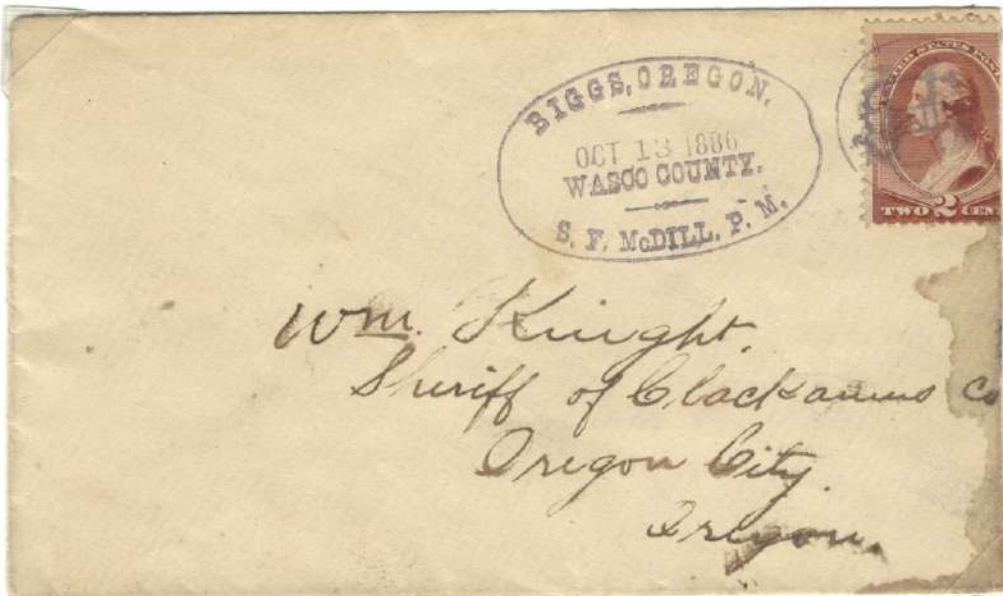 BIGGS, OREGON.
OCT 13 1886
WASCO COUNTY.
S. F. McDILL, P. M.
UNITED STATES POS
TWO 2 CEN
Wm. Knight.
Sheriff of Clackamas Co
Oregon City.
Oregon.